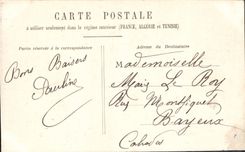 CARTE POSTALE
à utiliser seulement dans le régime intérieur (FRANCE, ALGÉRIE et TUNISIE)
Partie réservée à la correspondance
Adresse du Destinataire
Bons Baisers
Pauline
Mademoiselle
Maiz Le Roy
Rue Montfiquet
Bayeux
Calvados